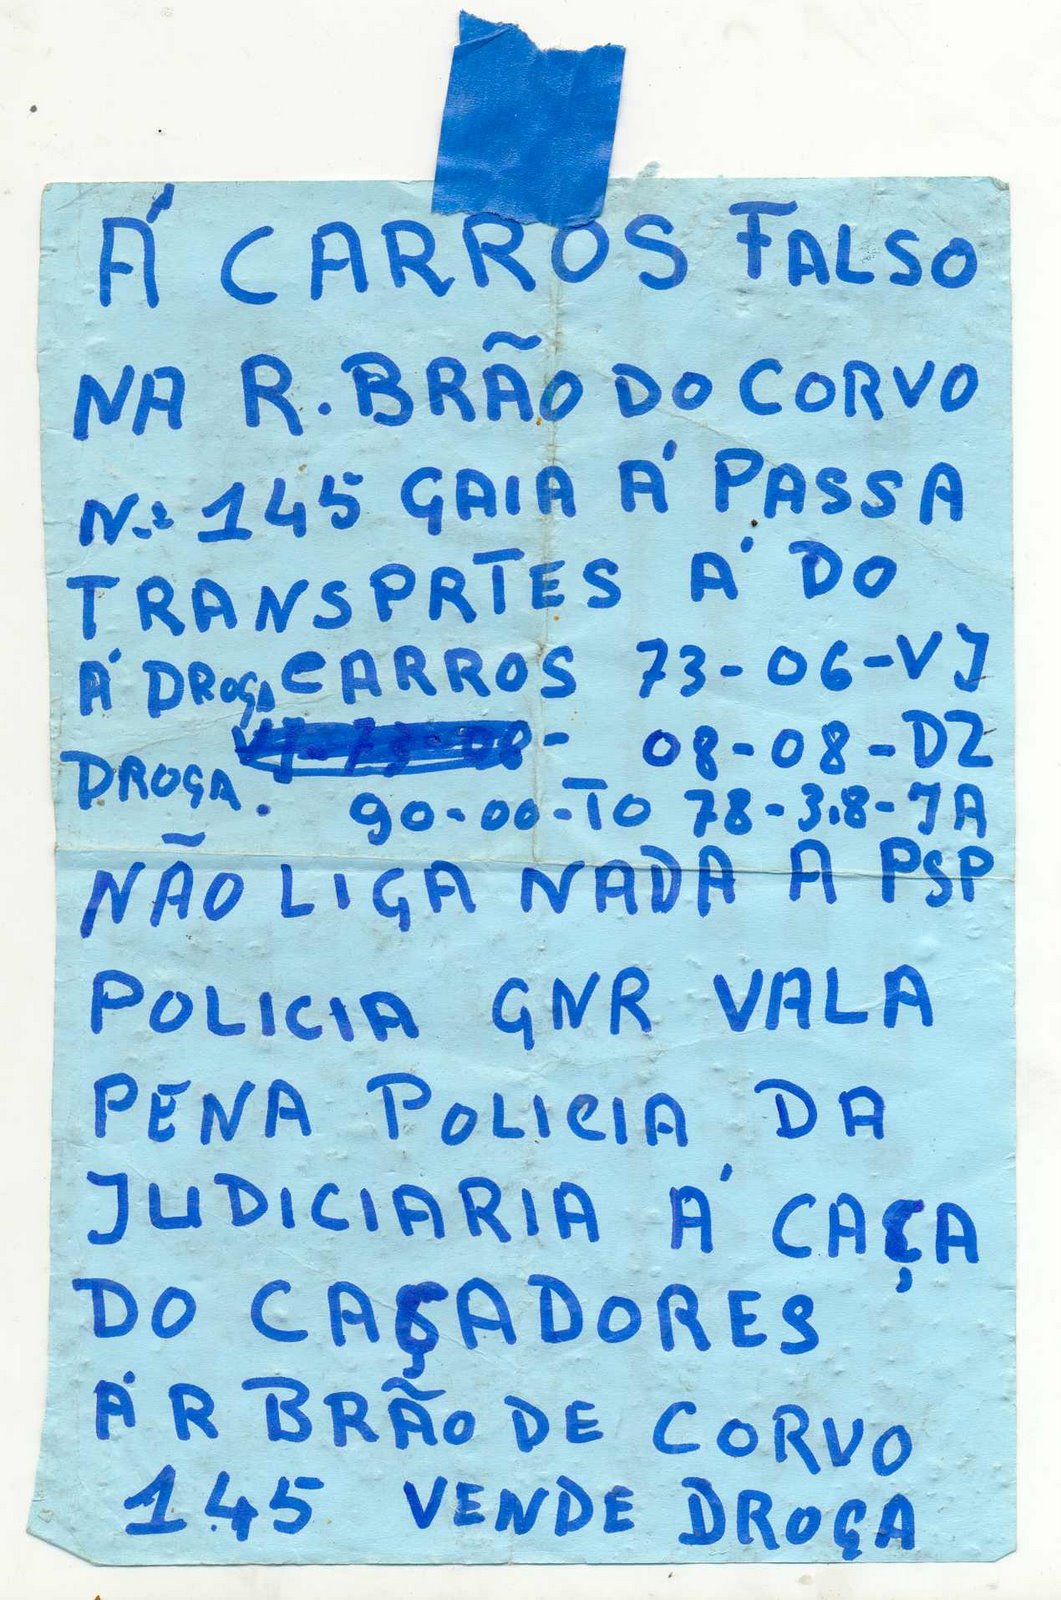 Á CARROS FALSO
NA R. BRÃO DO CORVO
N.º 145 GAIA Á PASSA
TRANSPRTES Á DO
Á DROGA CARROS 73-06-VJ
VJ-73-06- 08-08-DZ
DROGA. 90-00-TO 78-38-JA
NÃO LIGA NADA A PSP
POLICIA GNR VALA
PENA POLICIA DA
JUDICIARIA Á CAÇA
DO CAÇADORES
Á R BRÃO DE CORVO
145 VENDE DROGA